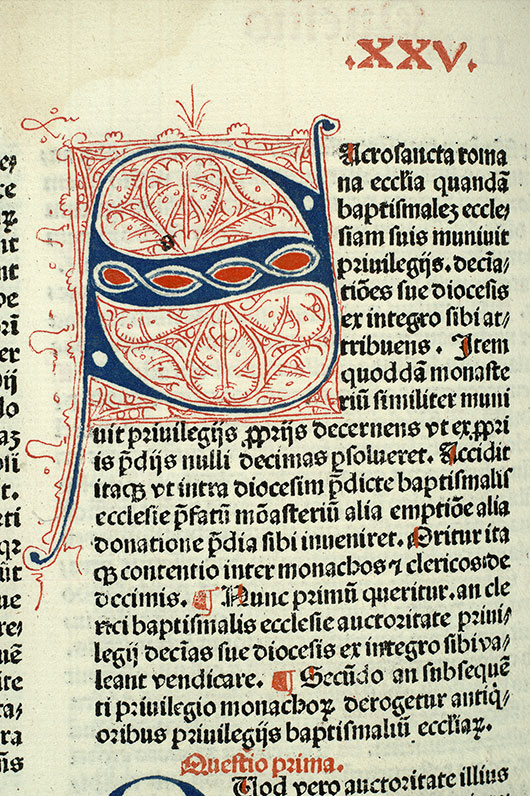 .XXV.
s
Acrosancta roma
na ecclīa quandā
baptismalez eccle⸗
siam suis muniuit
priuilegijs. decīa⸗
tiōes sue diocesis
ex integro sibi at⸗
tribuens. Item
quoddā monaste
riū similiter muni
uit priuilegijs ꝓprijs decernens vt ex ꝓpri
is p̄dijs nulli decimas ꝑsolueret. Accidit
itaqꝫ vt intra diocesim p̄dicte baptismalis
ecclesie p̄fatū mōasteriū alia emptiōe alia
donatione p̄dia sibi inueniret. Oritur ita
qꝫ contentio inter monachos ⁊ clericos de
decimis. ¶ Nunc primū queritur. an cle
rici baptismalis ecclesie auctoritate priui⸗
legij decīas sue diocesis ex integro sibi va⸗
leant vendicare. ¶ Secūdo an subsequē
ti priuilegio monachoꝝ derogetur antiq̄⸗
oribus priuilegijs baptismaliū eccīiaꝝ.
Questio prima.
Quod vero auctoritate illius